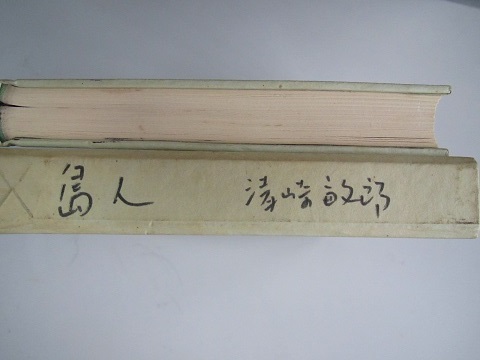 島人 清崎敏郎